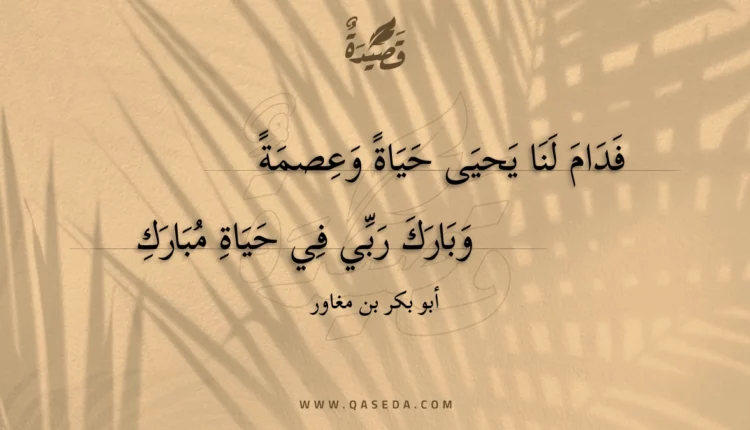 قَصِيدَةٌ
فَدَامَ لَنَا يَحيَى حَيَاةً وَعِصمَةً
وَبَارَكَ رَبِّي فِي حَيَاةِ مُبَارَكِ
أبو بكر بن مغاور
WWW.QASEDA.COM